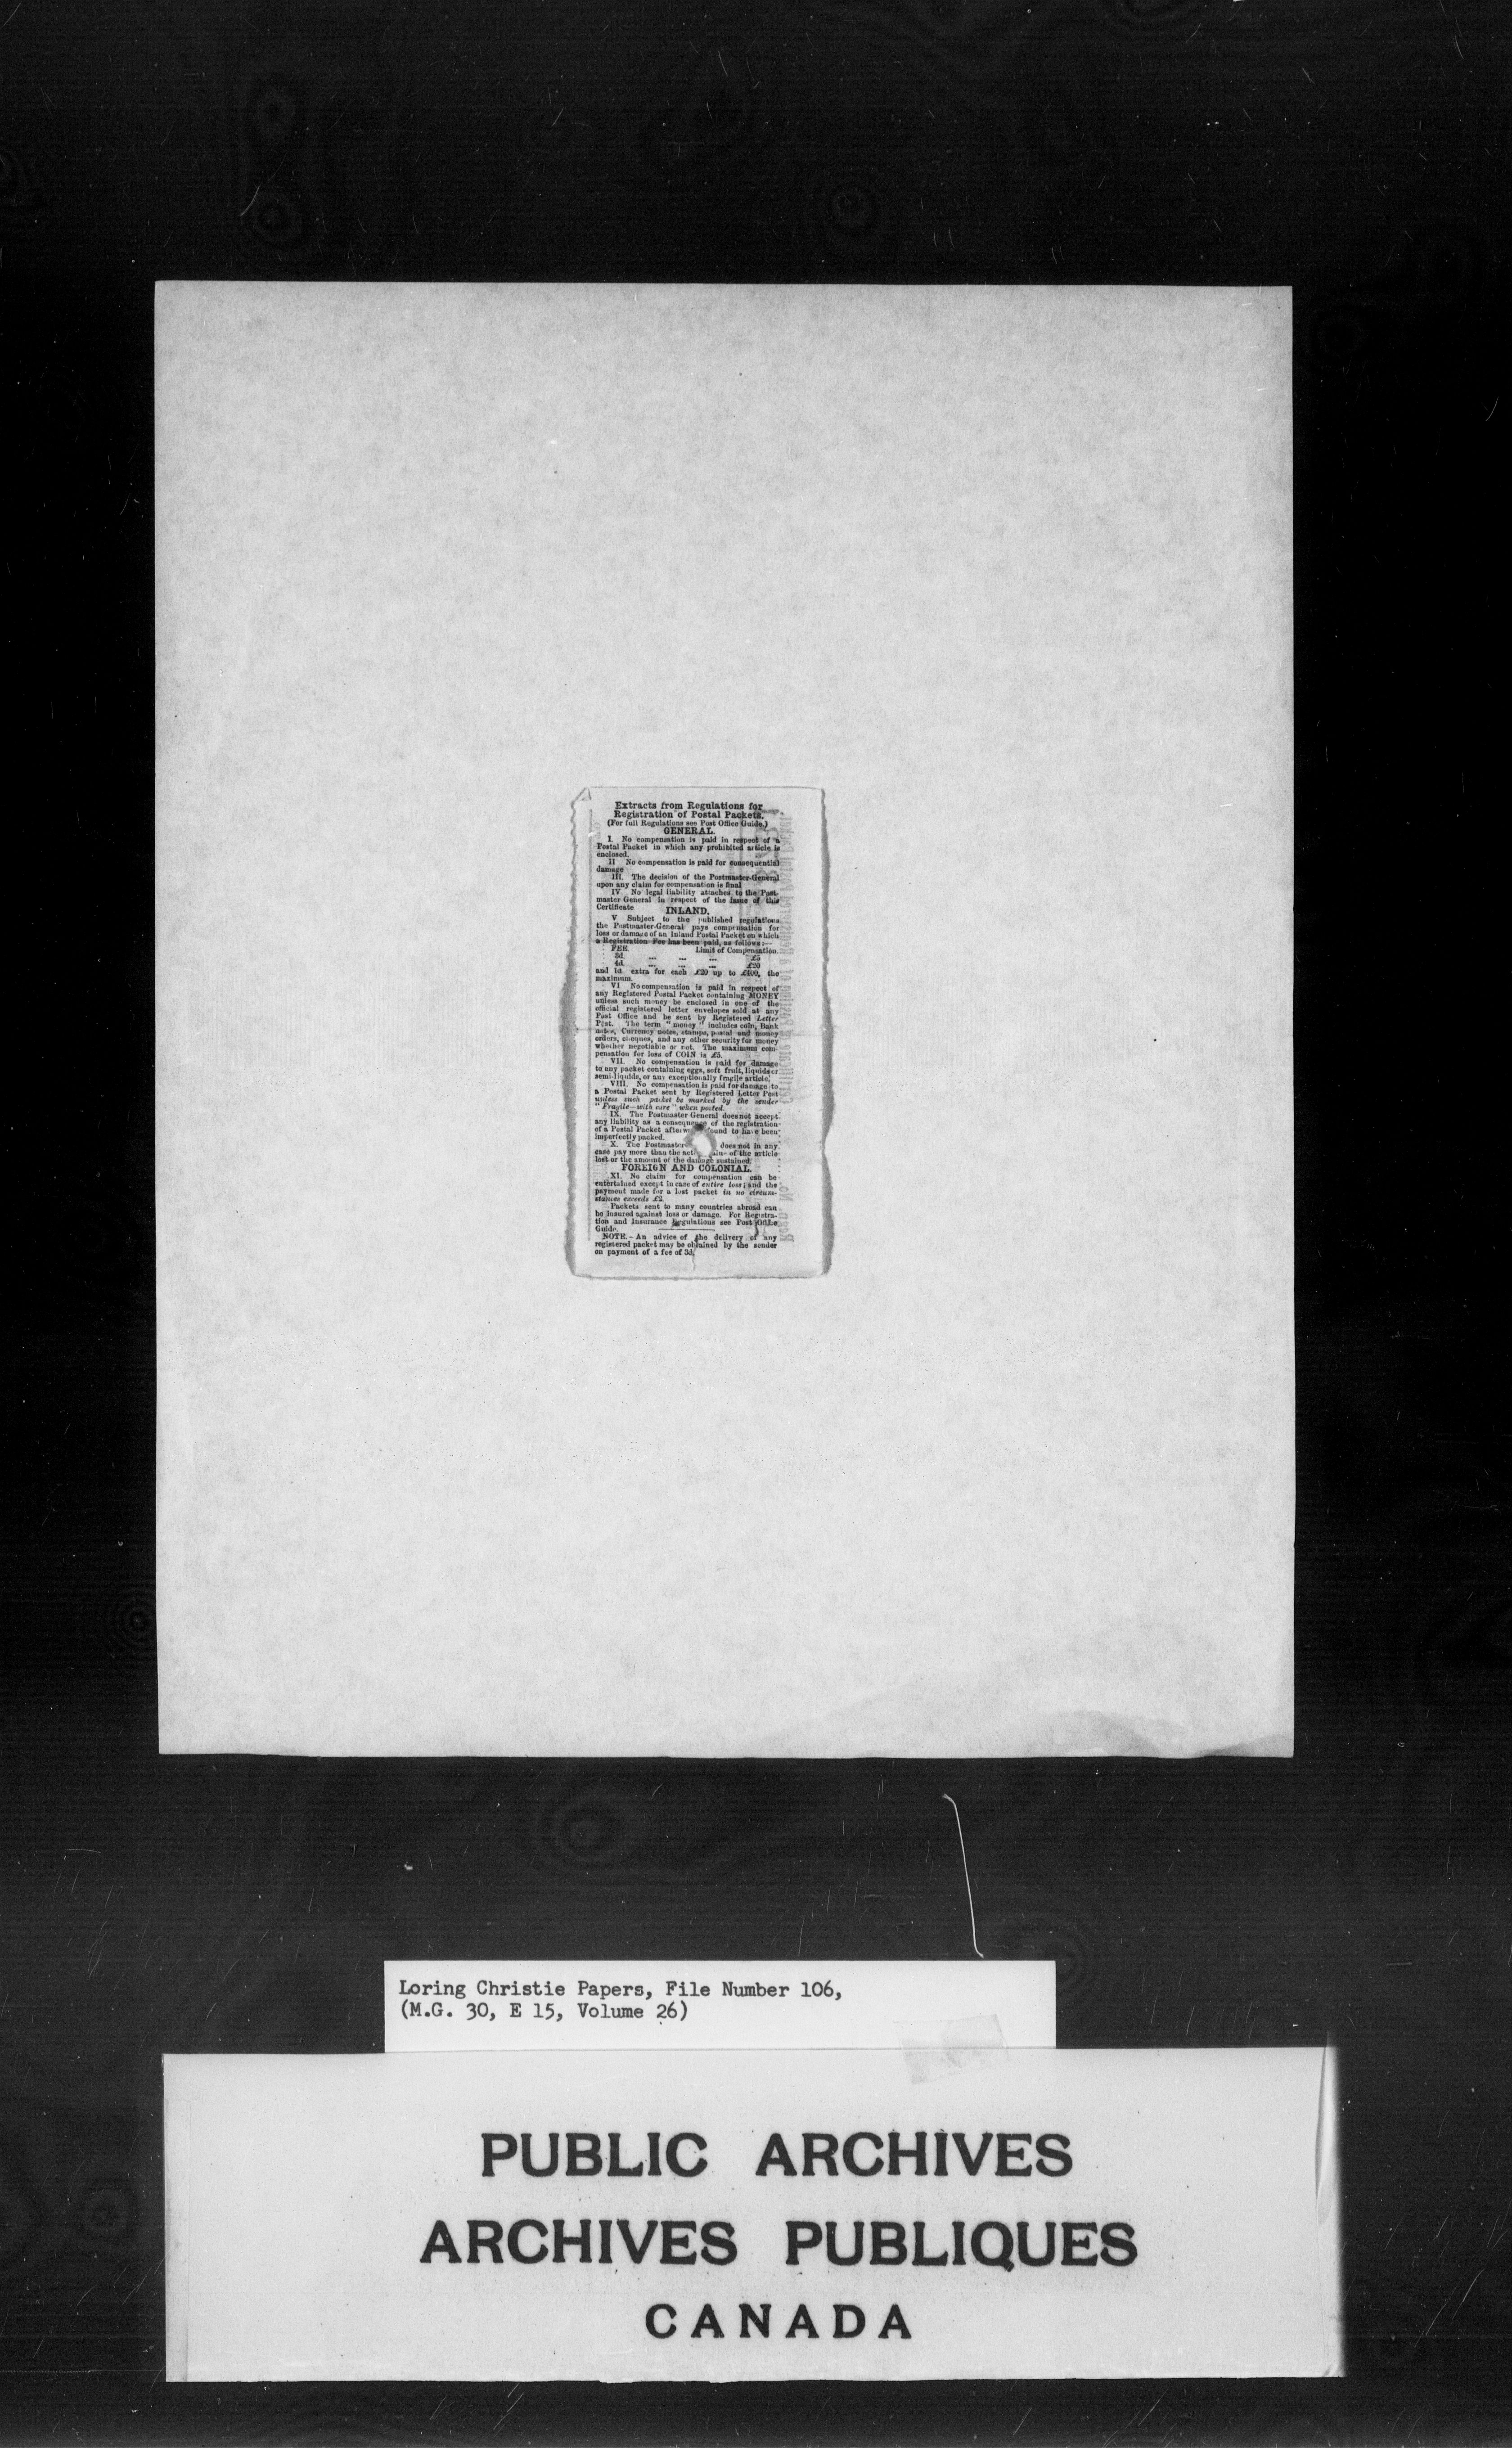 Extracts from Regulations for
Registration of Postal Packets.
(For full Regulations see Post Office Guide.)
GENERAL.
I. No compensation is paid in respect of a
Postal Packet in which any prohibited article is
enclosed.
II No compensation is paid for consequential
damage
III. The decision of the Postmaster-General
upon any claim for compensation is final
IV No legal liability attaches to the Post-
master General in respect of the issue of this
Certificate
INLAND.
V Subject to the published regulations
the Postmaster-General pays compensation for
loss or damage of an Inland Postal Packet on which
a Registration Fee has been paid, as follows:—
FEE. Limit of Compensation
3d. ... ... ... £5
4d. ... ... ... £20
and 1d. extra for each £20 up to £400, the
maximum.
VI No compensation is paid in respect of
any Registered Postal Packet containing MONEY
unless such money be enclosed in one of the
official registered letter envelopes sold at any
Post Office and be sent by Registered Letter
Post. The term "money" includes coin, Bank
notes, Currency notes, stamps, postal and money
orders, cheques, and any other security for money
whether negotiable or not. The maximum com-
pensation for loss of COIN is £5.
VII. No compensation is paid for damage
to any packet containing eggs, soft fruit, liquids or
semi-liquids, or any exceptionally fragile article.
VIII. No compensation is paid for damage to
a Postal Packet sent by Registered Letter Post
unless such packet be marked by the sender
"Fragile—with care" when posted.
IX. The Postmaster General does not accept
any liability as a consequence of the registration
of a Postal Packet afterw ound to have been
imperfectly packed.
X. The Postmaster does not in any
case pay more than the act of the article
lost or the amount of the damage sustained.
FOREIGN AND COLONIAL.
XI. No claim for compensation can be
entertained except in case of entire loss; and the
payment made for a lost packet in no circum-
stances exceeds £2.
Packets sent to many countries abroad can
be insured against loss or damage. For Registra-
tion and Insurance Regulations see Post Office
Guide.
NOTE.—An advice of the delivery of any
registered packet may be obtained by the sender
on payment of a fee of 3d.
Loring Christie Papers, File Number 106,
(M.G. 30, E 15, Volume 26)
PUBLIC ARCHIVES
ARCHIVES PUBLIQUES
CANADA